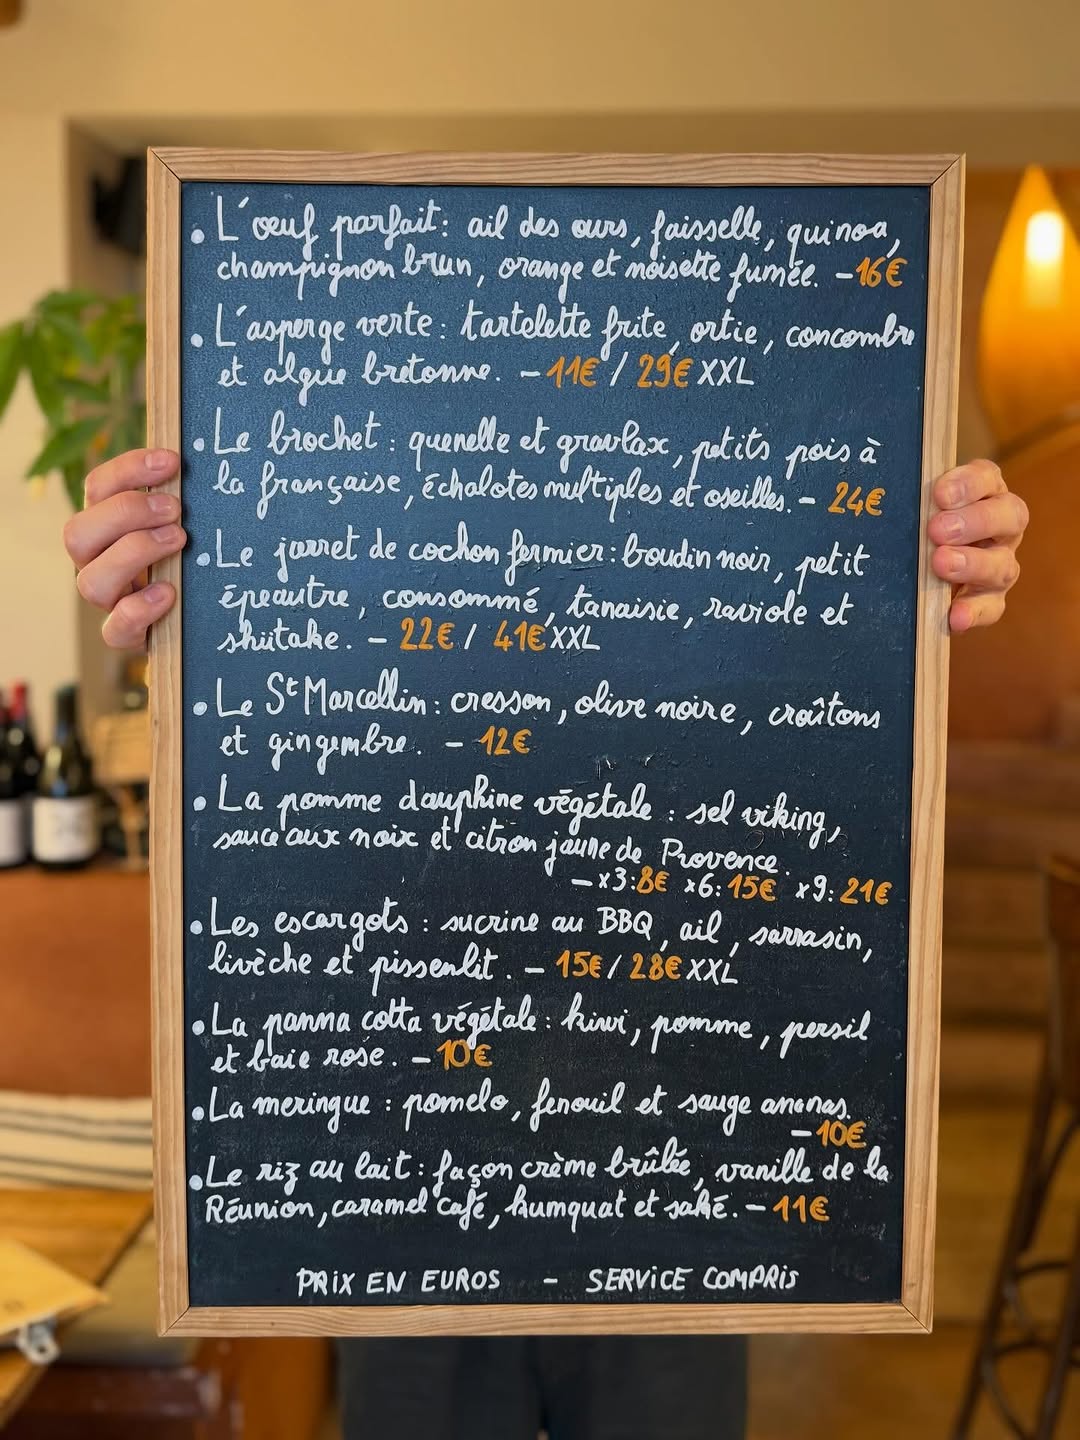 • L'œuf parfait : ail des ours, faisselle, quinoa,
champignon brun, orange et noisette fumée. - 16€
• L'asperge verte : tartelette frite, ortie, concombre
et algue bretonne. - 11€ / 29€ XXL
• Le brochet : quenelle et gravlax, petits pois à
la française, échalotes multiples et oseilles. - 24€
• Le jarret de cochon fermier : boudin noir, petit
épeautre, consommé, tanaisie, raviole et
shiitake. - 22€ / 41€ XXL
• Le St Marcellin : cresson, olive noire, croûtons
et gingembre. - 12€
• La pomme dauphine végétale : sel viking,
sauce aux noix et citron jaune de Provence.
- x3 : 8€ x6 : 15€ x9 : 21€
• Les escargots : sucrine au BBQ, ail, sarrasin,
livèche et pissenlit. - 15€ / 28€ XXL
• La panna cotta végétale : kiwi, pomme, persil
et baie rose. - 10€
• La meringue : pomelo, fenouil et sauge ananas.
- 10€
• Le riz au lait : façon crème brûlée, vanille de la
Réunion, caramel café, kumquat et saké. - 11€
PRIX EN EUROS - SERVICE COMPRIS